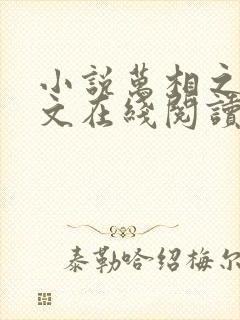 小説萬相之
文在綫閱讀
泰勒哈绍梅尔